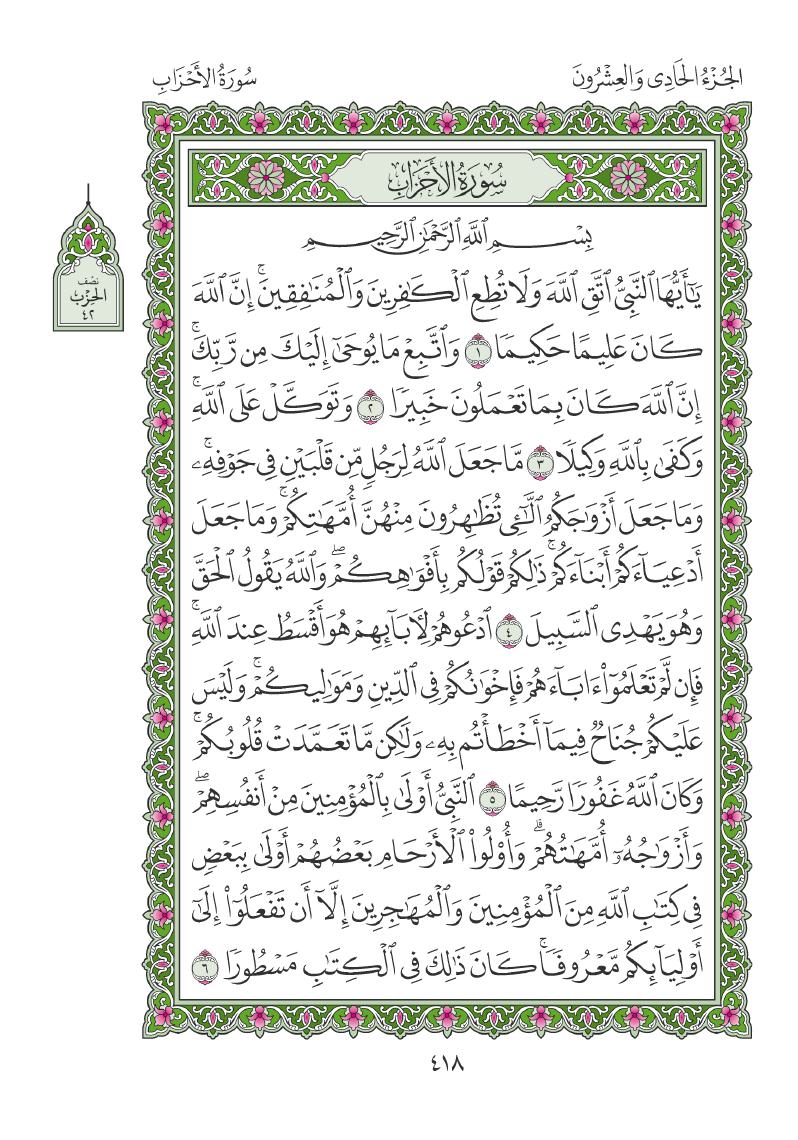 الجُزْءُ الحَادِى وَالعِشْرُونَ
سُورَةُ الأَحْزَابِ
سُورَةُ الأَحْزَابِ
نصف
الحِزْب
٤٢
بِسْمِ ٱللَّهِ ٱلرَّحْمَٰنِ ٱلرَّحِيمِ
يَٰٓأَيُّهَا ٱلنَّبِىُّ ٱتَّقِ ٱللَّهَ وَلَا تُطِعِ ٱلْكَٰفِرِينَ وَٱلْمُنَٰفِقِينَۚ إِنَّ ٱللَّهَ
كَانَ عَلِيمًا حَكِيمًا ١ وَٱتَّبِعْ مَا يُوحَىٰٓ إِلَيْكَ مِن رَّبِّكَۚ
إِنَّ ٱللَّهَ كَانَ بِمَا تَعْمَلُونَ خَبِيرًا ٢ وَتَوَكَّلْ عَلَى ٱللَّهِۚ
وَكَفَىٰ بِٱللَّهِ وَكِيلًا ٣ مَّا جَعَلَ ٱللَّهُ لِرَجُلٍ مِّن قَلْبَيْنِ فِى جَوْفِهِۦۚ
وَمَا جَعَلَ أَزْوَٰجَكُمُ ٱلَّٰٓـِٔى تُظَٰهِرُونَ مِنْهُنَّ أُمَّهَٰتِكُمْۚ وَمَا جَعَلَ
أَدْعِيَآءَكُمْ أَبْنَآءَكُمْۚ ذَٰلِكُمْ قَوْلُكُم بِأَفْوَٰهِكُمْۖ وَٱللَّهُ يَقُولُ ٱلْحَقَّ
وَهُوَ يَهْدِى ٱلسَّبِيلَ ٤ ٱدْعُوهُمْ لِـَٔابَآئِهِمْ هُوَ أَقْسَطُ عِندَ ٱللَّهِۚ
فَإِن لَّمْ تَعْلَمُوٓا۟ ءَابَآءَهُمْ فَإِخْوَٰنُكُمْ فِى ٱلدِّينِ وَمَوَٰلِيكُمْۚ وَلَيْسَ
عَلَيْكُمْ جُنَاحٌ فِيمَآ أَخْطَأْتُم بِهِۦ وَلَٰكِن مَّا تَعَمَّدَتْ قُلُوبُكُمْۚ
وَكَانَ ٱللَّهُ غَفُورًا رَّحِيمًا ٥ ٱلنَّبِىُّ أَوْلَىٰ بِٱلْمُؤْمِنِينَ مِنْ أَنفُسِهِمْۖ
وَأَزْوَٰجُهُۥٓ أُمَّهَٰتُهُمْۗ وَأُو۟لُوا۟ ٱلْأَرْحَامِ بَعْضُهُمْ أَوْلَىٰ بِبَعْضٍ
فِى كِتَٰبِ ٱللَّهِ مِنَ ٱلْمُؤْمِنِينَ وَٱلْمُهَٰجِرِينَ إِلَّآ أَن تَفْعَلُوٓا۟ إِلَىٰٓ
أَوْلِيَآئِكُم مَّعْرُوفًاۚ كَانَ ذَٰلِكَ فِى ٱلْكِتَٰبِ مَسْطُورًا ٦
٤١٨